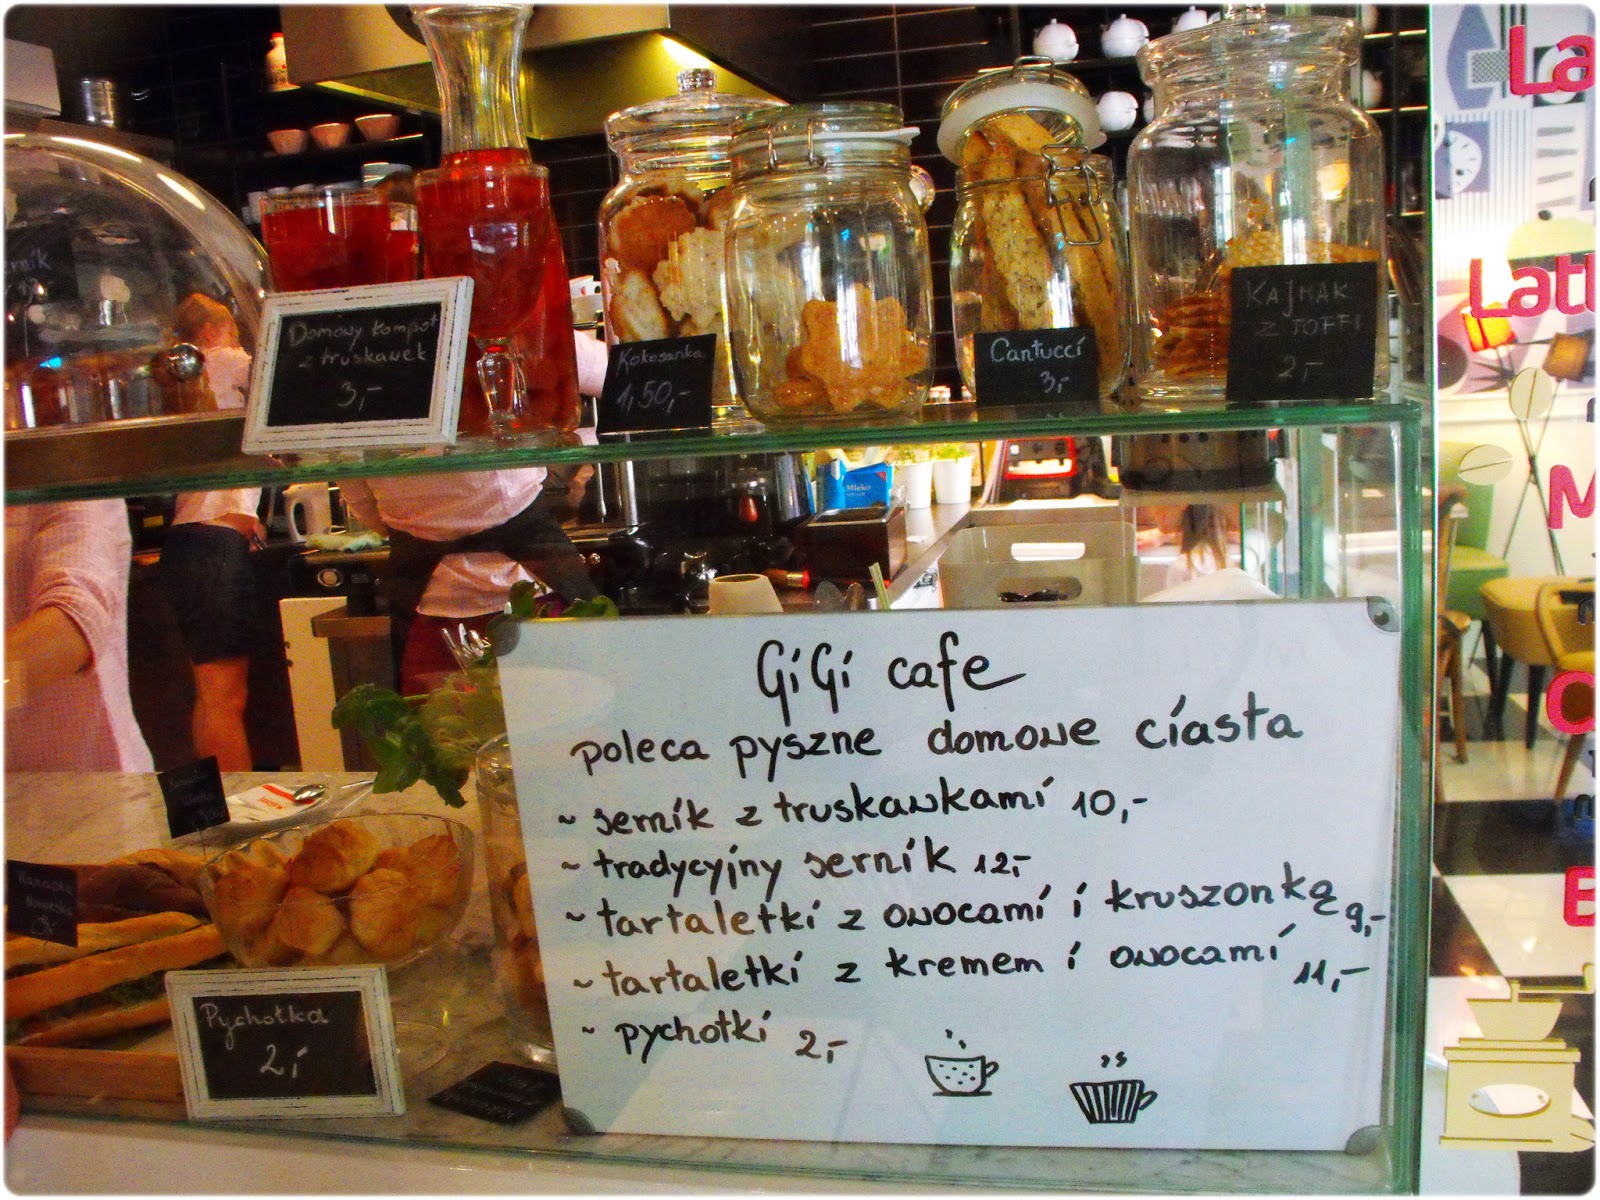 Domowy kompot
z truskawek
3,-
Kokosanka
1,50,-
Cantucci
3,-
KAJMAK
Z TOFFI
2,-
Mleko
GiGi cafe
poleca pyszne domowe ciasta
~ sernik z truskawkami 10,-
~ tradycyjny sernik 12,-
~ tartaletki z owocami i kruszonką 9,-
~ tartaletki z kremem i owocami 11,-
~ pychotki 2,-
Kanapka
Pychotka
2,-
La
Latt
M
C
B